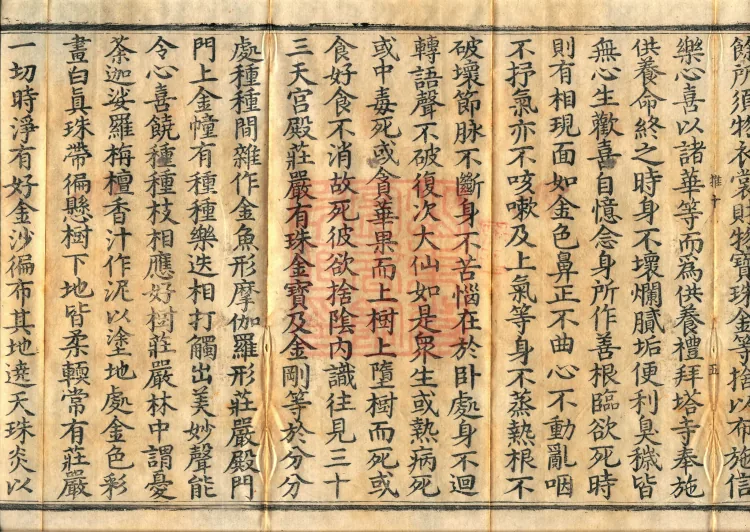 餘所須物衣裳財物寶珠金等捨以布施信
樂心喜以諸華等而爲供養禮拜塔寺奉施
供養命終之時身不壞爛膩垢便利臭穢皆
無心生歡喜自憶念身所作善根臨欲死時
則有相現面如金色鼻正不曲心不動亂咽
不抒氣亦不咳嗽及上氣等身不蒸熱根不
破壞節脉不斷身不苦惱在於卧處身不迴
轉語聲不破復次大仙如是衆生或熱病死
或中毒死或貪華果而上樹上墮樹而死或
食好食不消故死彼欲捨陰内識往見三十
三天宫殿莊嚴有珠金寶及金剛等於分分
處種種間雜作金魚形摩伽羅形莊嚴殿門
門上金幢有種種樂迭相打觸出美妙聲能
令心喜饒種種枝相應好樹莊嚴林中謂憂
荼迦娑羅栴檀香汁作泥以塗地處金色彩
畫白眞珠帶徧懸樹下地皆柔輭常有莊嚴
一切時淨有好金沙徧布其地遶天珠炎以